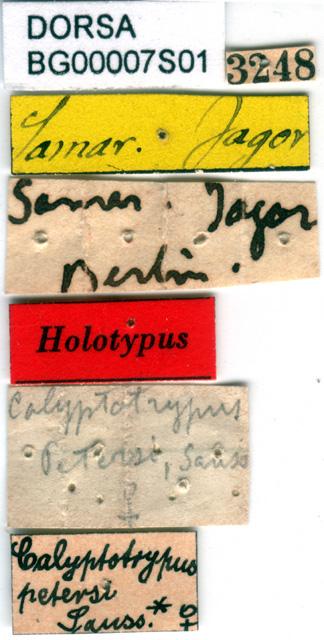 DORSA
BG00007S01
3248
Samar. Jagor
Samar. Jagor
Berlin.
Holotypus
Calyptotrypus
Petersi, Sauss
♀
Calyptotrypus
petersi
Sauss.* ♀